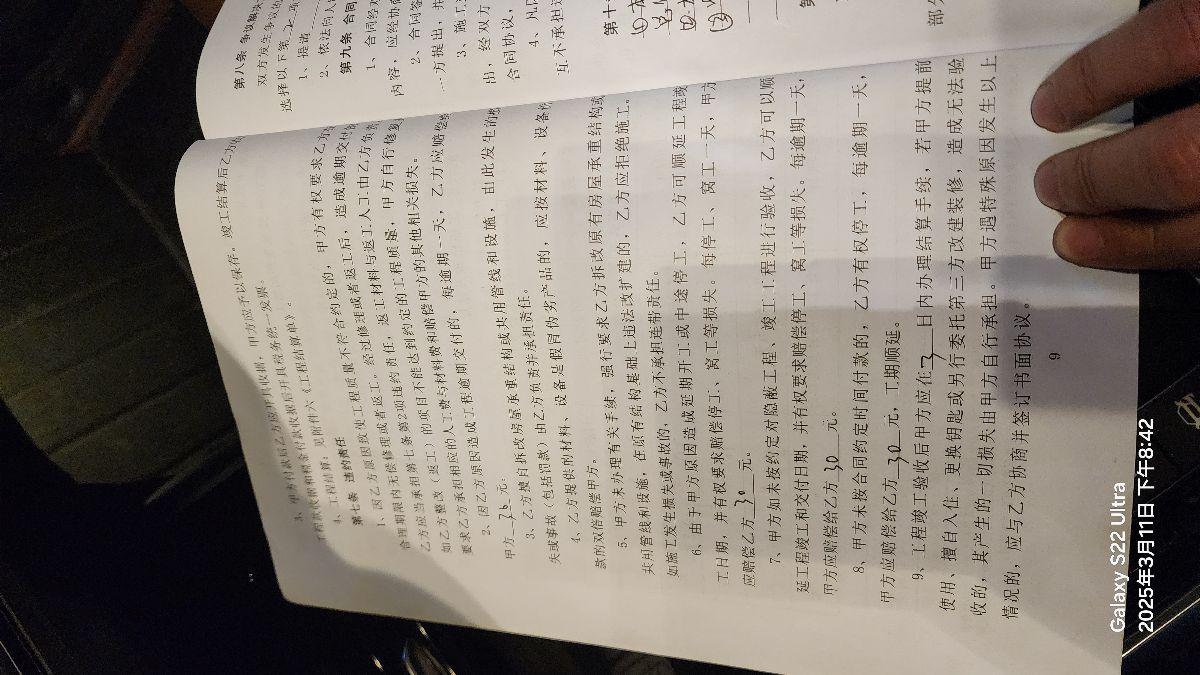 3、甲方付款后乙方应开具收据，甲方应予以保存。竣工结算后乙方
工程款收据和税金付款收据后开具税务统一发票。
4、工程结算：见附件六《工程结算单》。
第七条 违约责任
1、因乙方原因致使工程质量不符合约定的，甲方有权要求乙方
合理期限内无偿修理或者返工。经过修理或者返工后，造成逾期交付
乙方应当承担第七条第2项违约责任，返工材料与返工人工由乙方负
如乙方整改（返工）的项目不能达到约定的工程质量，甲方自行修
要求乙方承担相应的人工费与材料费和赔偿甲方的其他相关损失。
2、因乙方原因造成工程逾期交付的，每逾期一天，乙方应赔偿
甲方 元。
3、乙方擅自拆改房屋承重结构或共用管线和设施，由此发生的
失或事故（包括罚款）由乙方负责并承担责任。
4、乙方提供的材料、设备是假冒伪劣产品的，应按材料、设备
款的双倍赔偿甲方。
5、甲方未办理有关手续，强行要求乙方拆改原有房屋承重结构或
共用管线和设施，在原有结构基础上违法改扩建的，乙方应拒绝施工。
如施工发生损失或事故的，乙方不承担连带责任。
6、由于甲方原因造成延期开工或中途停工，乙方可顺延工程竣
工日期，并有权要求赔偿停工、窝工等损失。每停工、窝工一天，甲方
应赔偿乙方30元。
7、甲方如未按约定对隐蔽工程、竣工工程进行验收，乙方可以顺
延工程竣工和交付日期，并有权要求赔偿停工、窝工等损失。每逾期一天，
甲方应赔偿给乙方30元。
8、甲方未按合同约定时间付款的，乙方有权停工，每逾期一天，
甲方应赔偿给乙方30元，工期顺延。
9、工程竣工验收后甲方应在3日内办理结算手续，若甲方提前
使用、擅自入住、更换钥匙或另行委托第三方改建装修，造成无法验
收的，其产生的一切损失由甲方自行承担。甲方遇特殊原因发生以上
情况的，应与乙方协商并签订书面协议。
9
第八条 争议解决
双方发生争议的
选择以下第
1、提请
2、依法向人
第九条 合同
1、合同经双
内容，应经协
2、合同签
一方提出，并
3、施工
出，经双方
合同协议，
4、凡
互不承担
第十
部分
Galaxy S22 Ultra
2025年3月11日 下午8:42